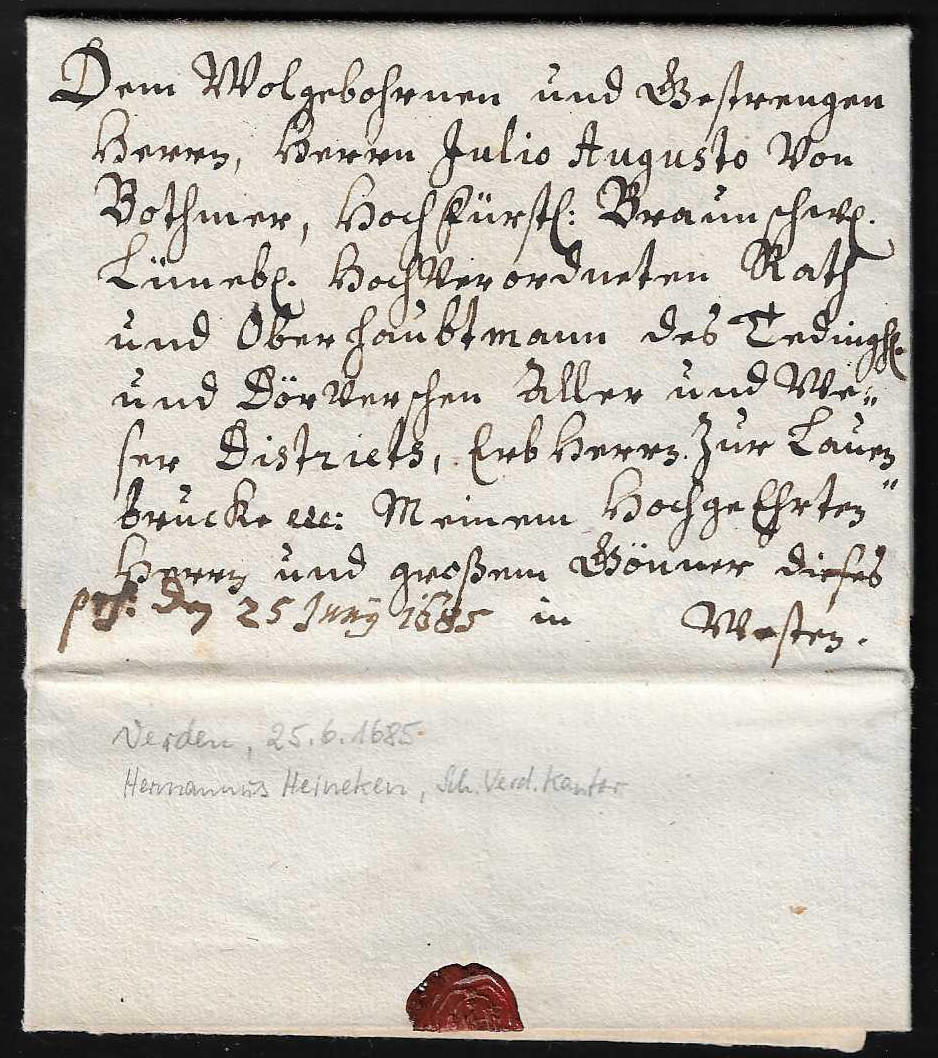 Dem Wolgebohrnen und Gestrengen
Herrn, Herrn Julio Augusto Von
Bothmer, Hochfürstl: Braunschwl.
Lünebl. HochVerordneten Rath
und Oberhaubtmann des Tedinghl.
und DörVerschen Aller und We⸗
ser Districts, ErbHerrn Zur Lauen⸗
brucke etc: Meinem HochgeEhrten
Herrn und großem Gönner dieses
pst: den 25 Juny 1685 in Westen.
Verden, 25.6.1685
Hermannus Heineken, Sch. Verd. Kantor